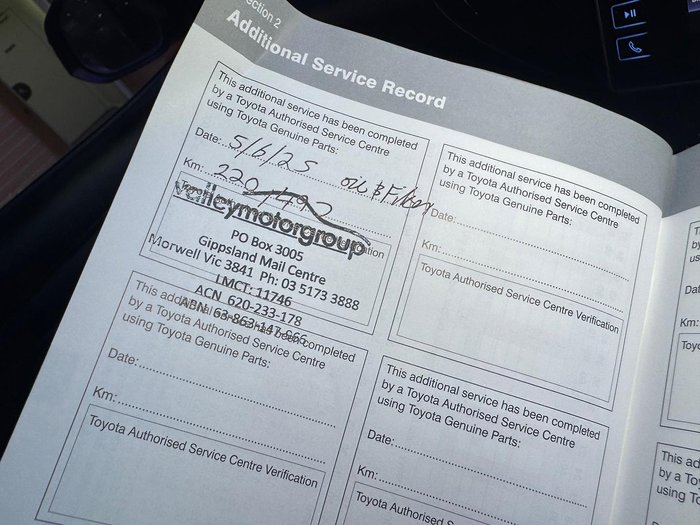 Section 2
Additional Service Record
This additional service has been completed
by a Toyota Authorised Service Centre
using Toyota Genuine Parts:
Date: 5/6/25 oil & Filter
Km: 220,492
valleymotorgroup
PO Box 3005
Gippsland Mail Centre
Morwell Vic 3841 Ph: 03 5173 3888
LMCT: 11746
ACN 620-233-178
ABN 63-863-147-966
This additional service has been completed
by a Toyota Authorised Service Centre
using Toyota Genuine Parts:
Date:
Km:
Toyota Authorised Service Centre Verification
This additional service has been completed
by a Toyota Authorised Service Centre
using Toyota Genuine Parts:
Date:
Km:
Toyota Authorised Service Centre Verification
This additional service has been completed
by a Toyota Authorised Service Centre
using Toyota Genuine Parts:
Date:
Km:
Toyota Authorised Service Centre
Km:
Toyo
This ad
by a To
using To